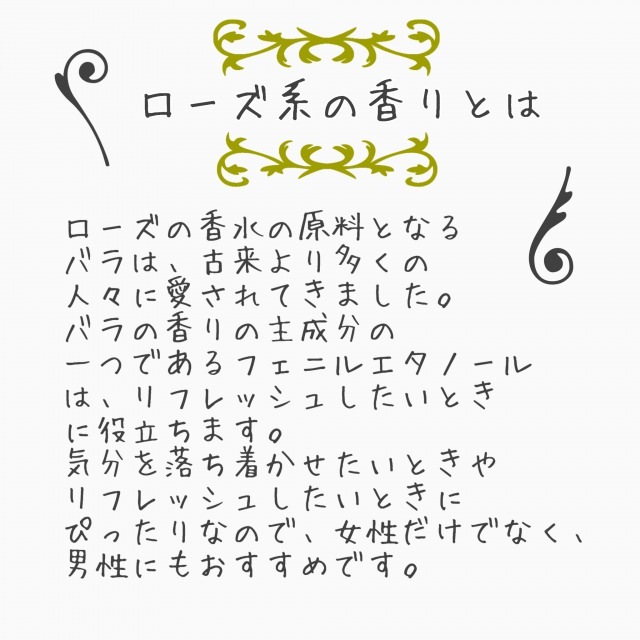 ローズ系の香りとは
ローズの香水の原料となる
バラは、古来より多くの
人々に愛されてきました。
バラの香りの主成分の
一つであるフェニルエタノール
は、リフレッシュしたいとき
に役立ちます。
気分を落ち着かせたいときや
リフレッシュしたいときに
ぴったりなので、女性だけでなく、
男性にもおすすめです。